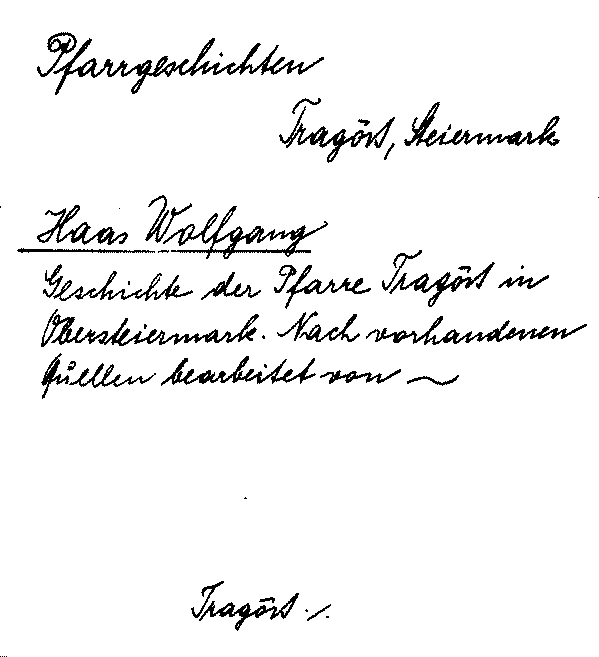 Pfarrgeschichten
Tragöst, Steiermark
Haas Wolfgang
Geschichte der Pfarre Tragöst in
Obersteiermark. Nach vorhandenen
Quellen bearbeitet von ~
Tragöst ./.